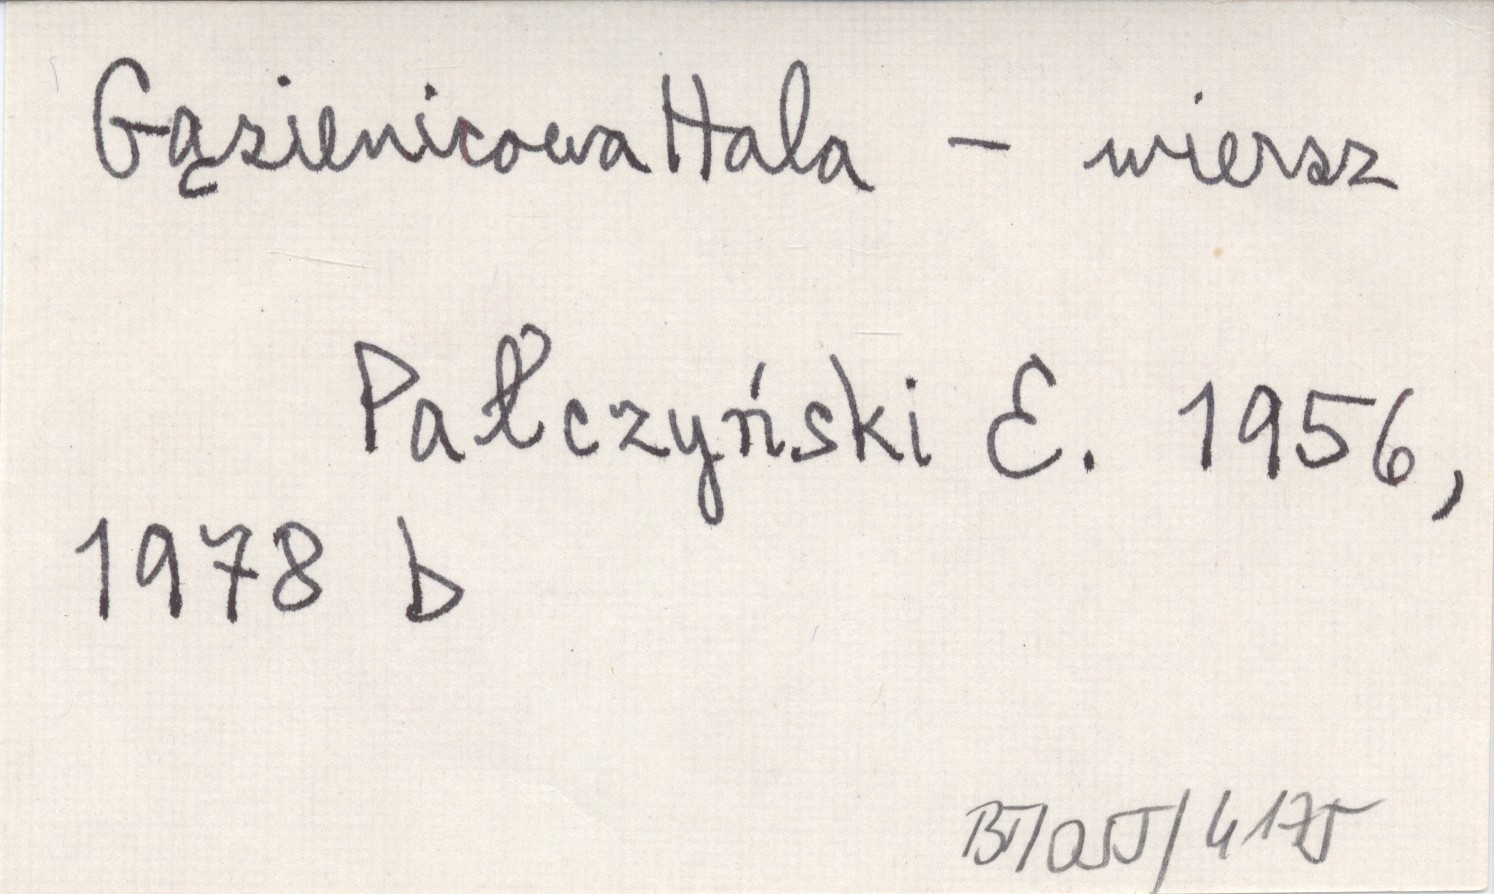 Gąsienicowa Hala - wiersz
Pałczyński E. 1956,
1978 b